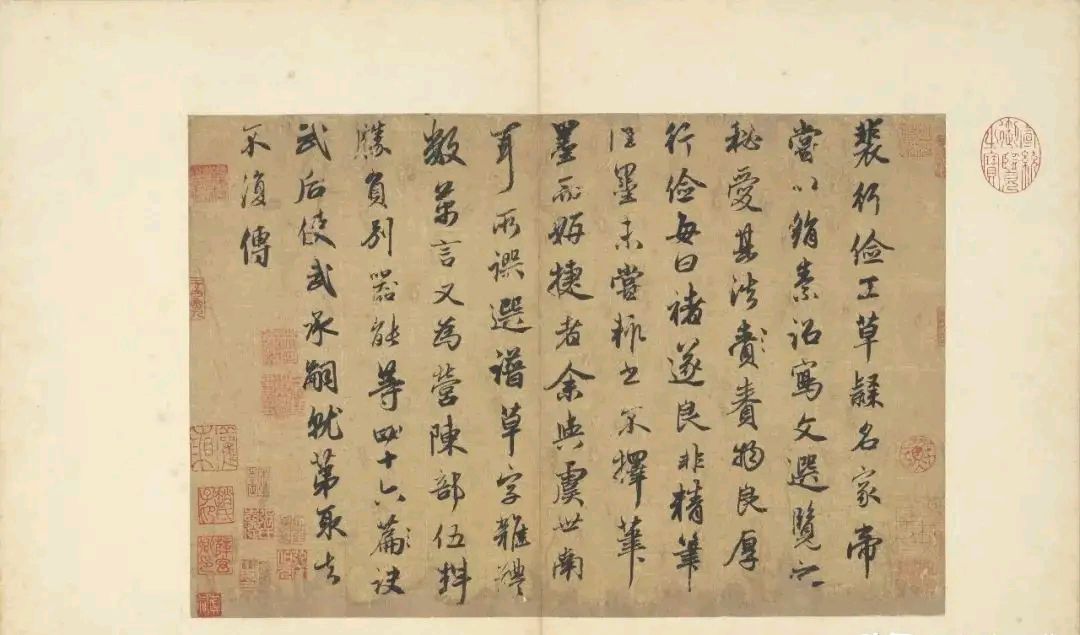 裴行俭工草隸名家帝
嘗以絹素詔寫文選覽之
秘愛其法賫賚物良厚
行俭每曰褚遂良非精筆
佳墨未嘗輒書不擇筆
墨而妍捷者余與虞世南
耳所譔選譜草字雜體
數萬言又為營陳部伍料
勝負別器能等四十六篇訣
武后使武承嗣就第取去
不復傳
宣統御覽之寶